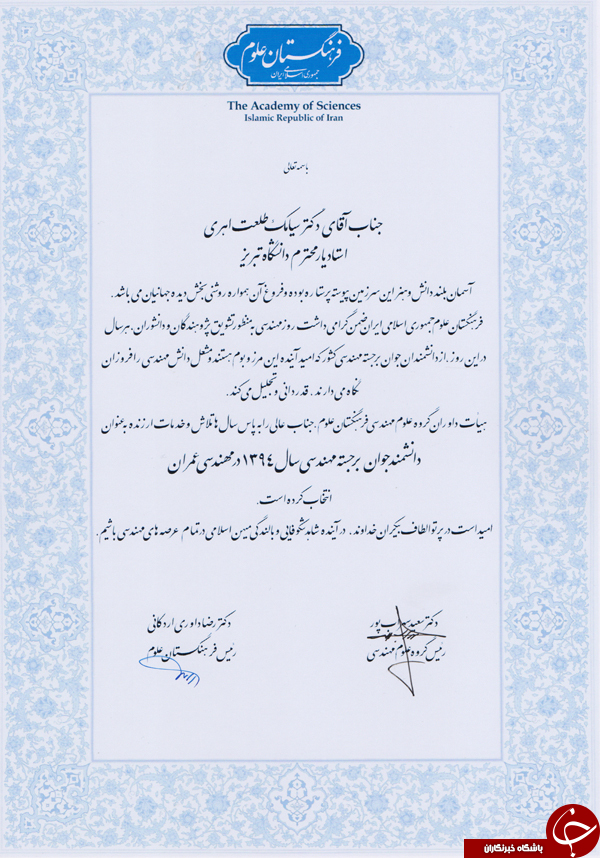 فرهنگستان علوم
جمهوری اسلامی ایران
The Academy of Sciences
Islamic Republic of Iran
باسمه تعالی
جناب آقای دکتر سیامک طلعت اهری
استادیار محترم دانشگاه تبریز
آسمان بلند دانش و هنر این سرزمین پیوسته پرستاره بوده و فروغ آن همواره روشنی بخش دیده جهانیان می باشد.
فرهنگستان علوم جمهوری اسلامی ایران ضمن گرامی داشت روز مهندسی به منظور تشویق پژوهندگان و دانشوران، هر سال
در این روز، از دانشمندان جوان برجسته مهندسی کشور که امید آینده این مرز و بوم هستند و مشعل دانش مهندسی را فروزان
نگاه می دارند، قدردانی و تجلیل می کند.
هیأت داوران گروه علوم مهندسی فرهنگستان علوم، جناب عالی را به پاس سال ها تلاش و خدمات ارزنده به عنوان
دانشمند جوان برجسته مهندسی سال ۱۳۹۴ در مهندسی عمران
انتخاب کرده است.
امید است در پرتو الطاف بیکران خداوند، در آینده شاهد شکوفایی و بالندگی میهن اسلامی در تمام عرصه های مهندسی باشیم.
دکتر سعید سهراب پور
رئیس گروه علوم مهندسی
دکتر رضا داوری اردکانی
رئیس فرهنگستان علوم
باشگاه خبرنگاران